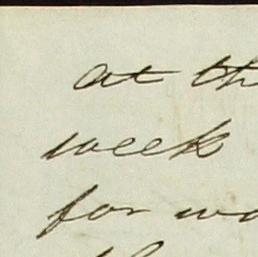 at th
week
for wo